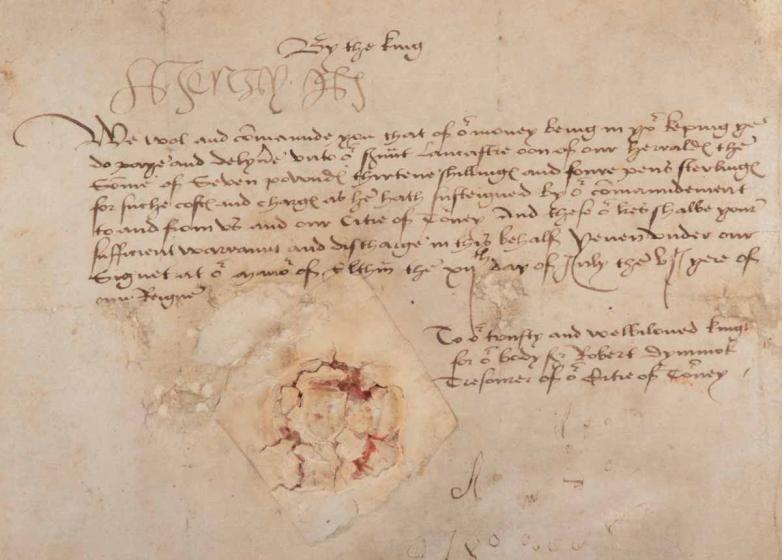 By the king
Henry R
We wol and cōmaunde you that of oʳ money being in yoʳ keping ye
do paye and delyūe vnto oʳ sʳuūt Lancastre oon of our herraldꝭ the
Some of Seven poundꝭ thirtene shillingꝭ and foure pens sterlingꝭ
for suche costꝭ and chargꝭ as he hath susteigned by oʳ cōmaundement
to and from vs and our Citie of Torney And these oʳ lr̄es shalbe your
sufficient warraunt and discharge in this behalf Yeuen vnder our
Signet at oʳ manoʳ of Elthm̄ the xijᵗʰ day of July the vijᵗʰ yere of
our Reigne
To oʳ trusty and welbiloued knight
for oʳ body sʳ Robert dymmok
Tresourer of oʳ Citie of Torney